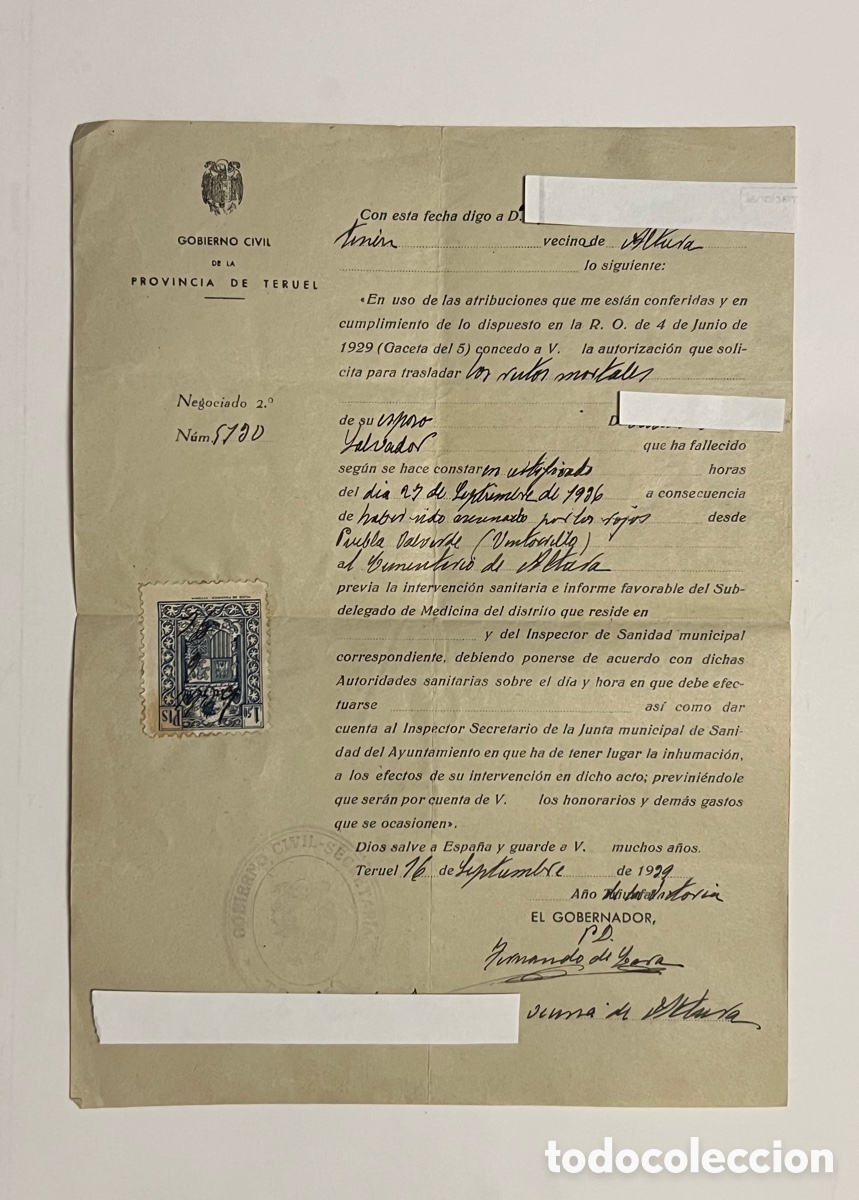 GOBIERNO CIVIL
DE LA
PROVINCIA DE TERUEL
Negociado 2.º
Núm. 5730
Con esta fecha digo a D.
vecino de Altura
lo siguiente:
«En uso de las atribuciones que me están conferidas y en
cumplimiento de lo dispuesto en la R. O. de 4 de Junio de
1929 (Gaceta del 5) concedo a V. la autorización que soli-
cita para trasladar los restos mortales
de su esposo D.
Salvador que ha fallecido
según se hace constar en certificado horas
del dia 27 de Septiembre de 1936 a consecuencia
de haber sido asesinado por los rojos desde
Puebla Valverde
al Cementerio de Altura
previa la intervención sanitaria e informe favorable del Sub-
delegado de Medicina del distrito que reside en
y del Inspector de Sanidad municipal
correspondiente, debiendo ponerse de acuerdo con dichas
Autoridades sanitarias sobre el día y hora en que debe efec-
tuarse así como dar
cuenta al Inspector Secretario de la Junta municipal de Sani-
dad del Ayuntamiento en que ha de tener lugar la inhumación,
a los efectos de su intervención en dicho acto; previniéndole
que serán por cuenta de V. los honorarios y demás gastos
que se ocasionen».
Dios salve a España y guarde a V. muchos años.
Teruel 16 de Septiembre de 1939
Año de la Victoria
EL GOBERNADOR,
P.D.
Fernando de Lara
vecina de Altura
1,50 Pts
GOBIERNO CIVIL-SECRETARIA
todocoleccion